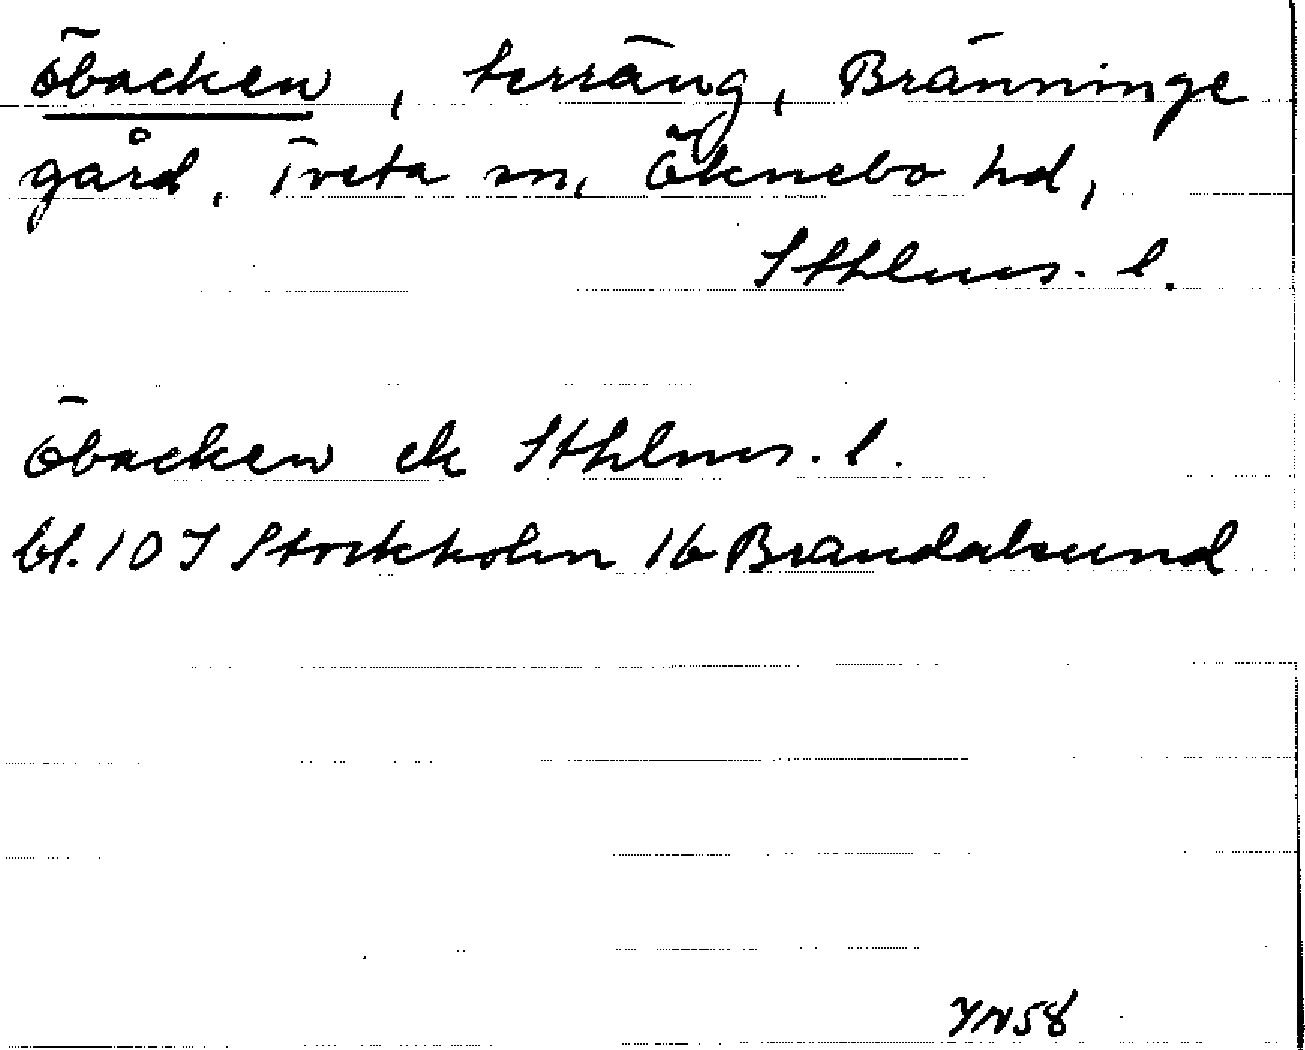 Öbacken, terräng, Bränninge
gård, Tveta sn, Öknebo hd,
Sthlms. l.
Öbacken ek Sthlms. l.
bl. 10 I Stockholm 1b Brandalsund
YN58